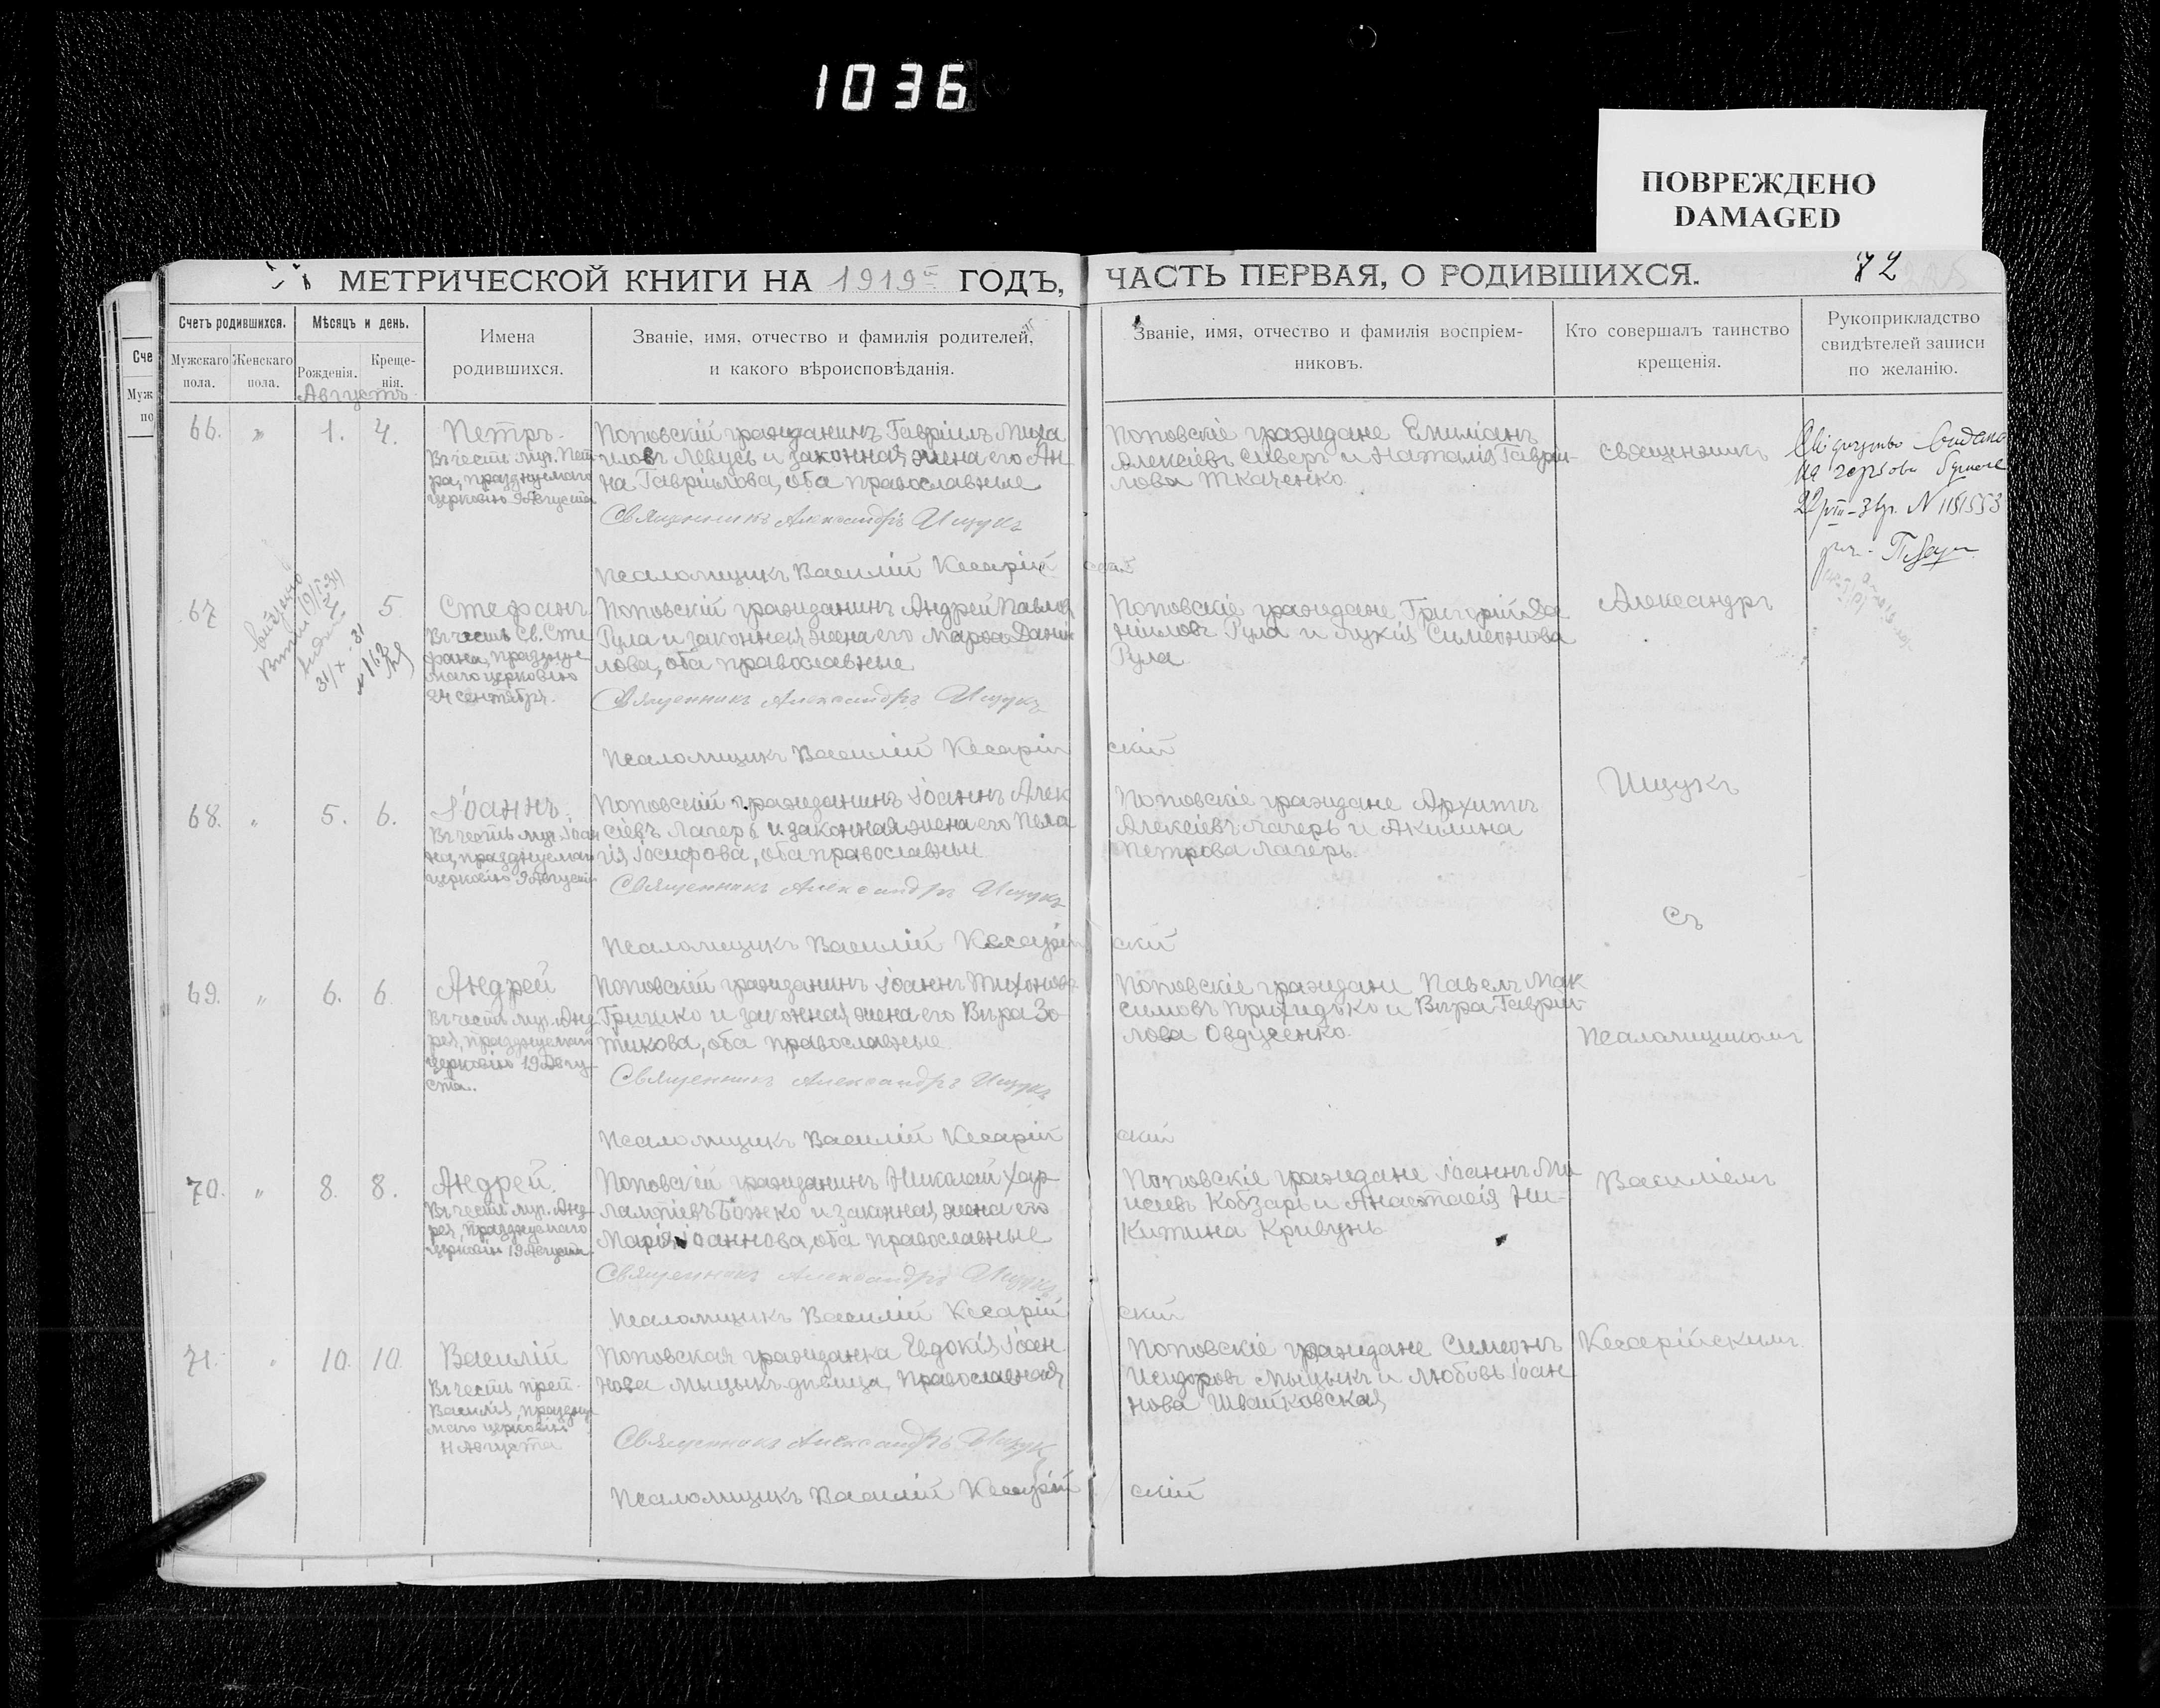 1036
ПОВРЕЖДЕНО
DAMAGED
МЕТРИЧЕСКОЙ КНИГИ НА 1919й ГОДЪ,
ЧАСТЬ ПЕРВАЯ, О РОДИВШИХСЯ.
72
Счетъ родившихся.
Мужскаго пола.
Женскаго пола.
Мѣсяцъ и день.
Рожденія.
Креще-
нія.
Августъ
Имена
родившихся.
Званіе, имя, отчество и фамилія родителей,
и какого вѣроисповѣданія.
Званіе, имя, отчество и фамилія воспріем-
никовъ.
Кто совершалъ таинство
крещенія.
Рукоприкладство
свидѣтелей записи
по желанію.
Сче
Муж
по
66. " 1. 4.
Петръ.
Въ честь муч. Пет
ра, празднуемаго
церковію 9 Августа
Поповскій гражданинъ Гавріилъ Миха
иловъ Левусь и законная жена его Ан
на Гавріилова, оба православные
Священникъ Александръ Ищукъ
Псаломщикъ Василій Кесарій
ский
Поповскіе граждане Емиліанъ
Алексіевъ Сиверъ и Наталія Гаврі-
лова Ткаченко.
Священникъ
видано
N 1151553
67 5
31/X-31
N 162
Стефанъ
Въ честь Св. Сте
фана, праздуе
маго церковію
24 сентября.
Поповскій гражданинъ Андрей Павлов
Рула и законная жена его Марѳа Дани
лова, оба православные
Священникъ Александръ Ищукъ
Псаломщикъ Василій Кесарій
скій
Поповскіе граждане Григорій Да
ніиловъ Рула и Лукія Симеонова
Рула
Александръ
68. " 5. 6.
Іоаннъ.
Въ честь муч. Іоан
на, празднуемаго
церковію 9 Августа
Поповскій гражданинъ Іоаннъ Алек
сіевъ Лагерь и законная жена его Пела
гія Іосифова, оба православные
Священникъ Александръ Ищукъ
Псаломщикъ Василій Кесарій
скій
Поповскіе граждане Архипъ
Алексіевъ Лагерь и Акилина
Петрова Лагерь.
Ищукъ
Съ
69. " 6. 6
Андрей
Въ честь муч. Анд
рея, празднуемаго
церковію 19 Авгу-
ста.
Поповскій гражданинъ Іоаннъ Тихоновъ
Гришко и законная жена его Вѣра Зо
тикова, оба православные
Священникъ Александръ Ищукъ
Псаломщикъ Василій Кесарій
скій
Поповскіе граждане Павелъ Мак
симовъ Прихидько и Вѣра Гавріи-
лова Овдіенко.
Псаломщикомъ
70. " 8. 8.
Андрей.
Въ честь муч. Анд-
рея, празднуемаго
церковію 19 Августа
Поповскій гражданинъ Николай Хар-
лампіевъ Божко и законная жена его
Марія Іоаннова, оба православные
Священникъ Александръ Ищукъ
Псаломщикъ Василій Кесарій
скій
Поповскіе граждане Іоаннъ Мои
исеевъ Кобзарь и Анастасія Ни-
китина Кривунь
Василіемъ
71. " 10. 10.
Василій
Въ честь преп.
Василія, праздну
маго церковію
11 Августа
Поповская гражданка Евдокія Іоан
нова Мыцыкъ-дѣвица, православная
Священникъ Александръ Ищукъ
Псаломщикъ Василій Кесарій
скій
Поповскіе граждане Симеонъ
Исидоровъ Мыцыкъ и Любовь Іоан
нова Швайковская
Кесарійскимъ